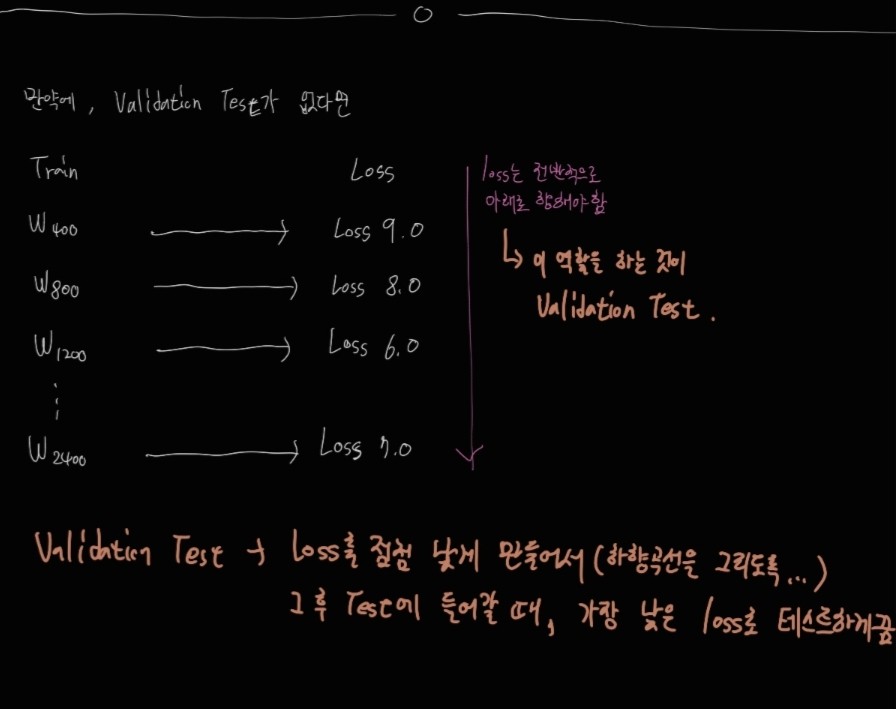 만약에, Validation Test가 없다면
Train Loss
W400 → Loss 9.0
W800 → Loss 8.0
W1200 → Loss 6.0
W2400 → Loss 7.0
loss는 전반적으로
아래로 향해야함
↳ 이 역할을 하는 것이
Validation Test.
Validation Test → Loss를 점첨 낮게 만들어서 (하향곡선을 그리도록...)
그 후 Test에 들어갈 때, 가장 낮은 loss로 테스트하게끔